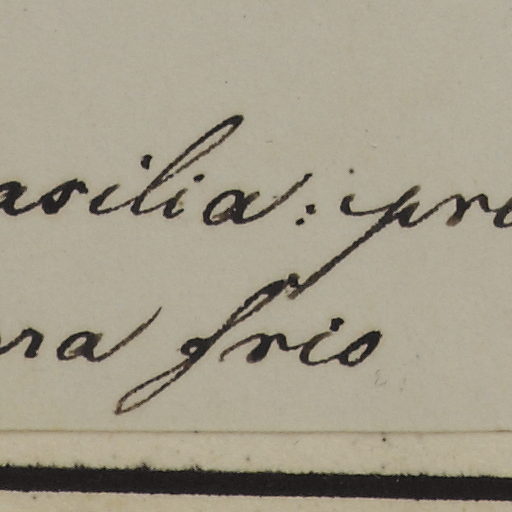 asilia: pro
ra frio